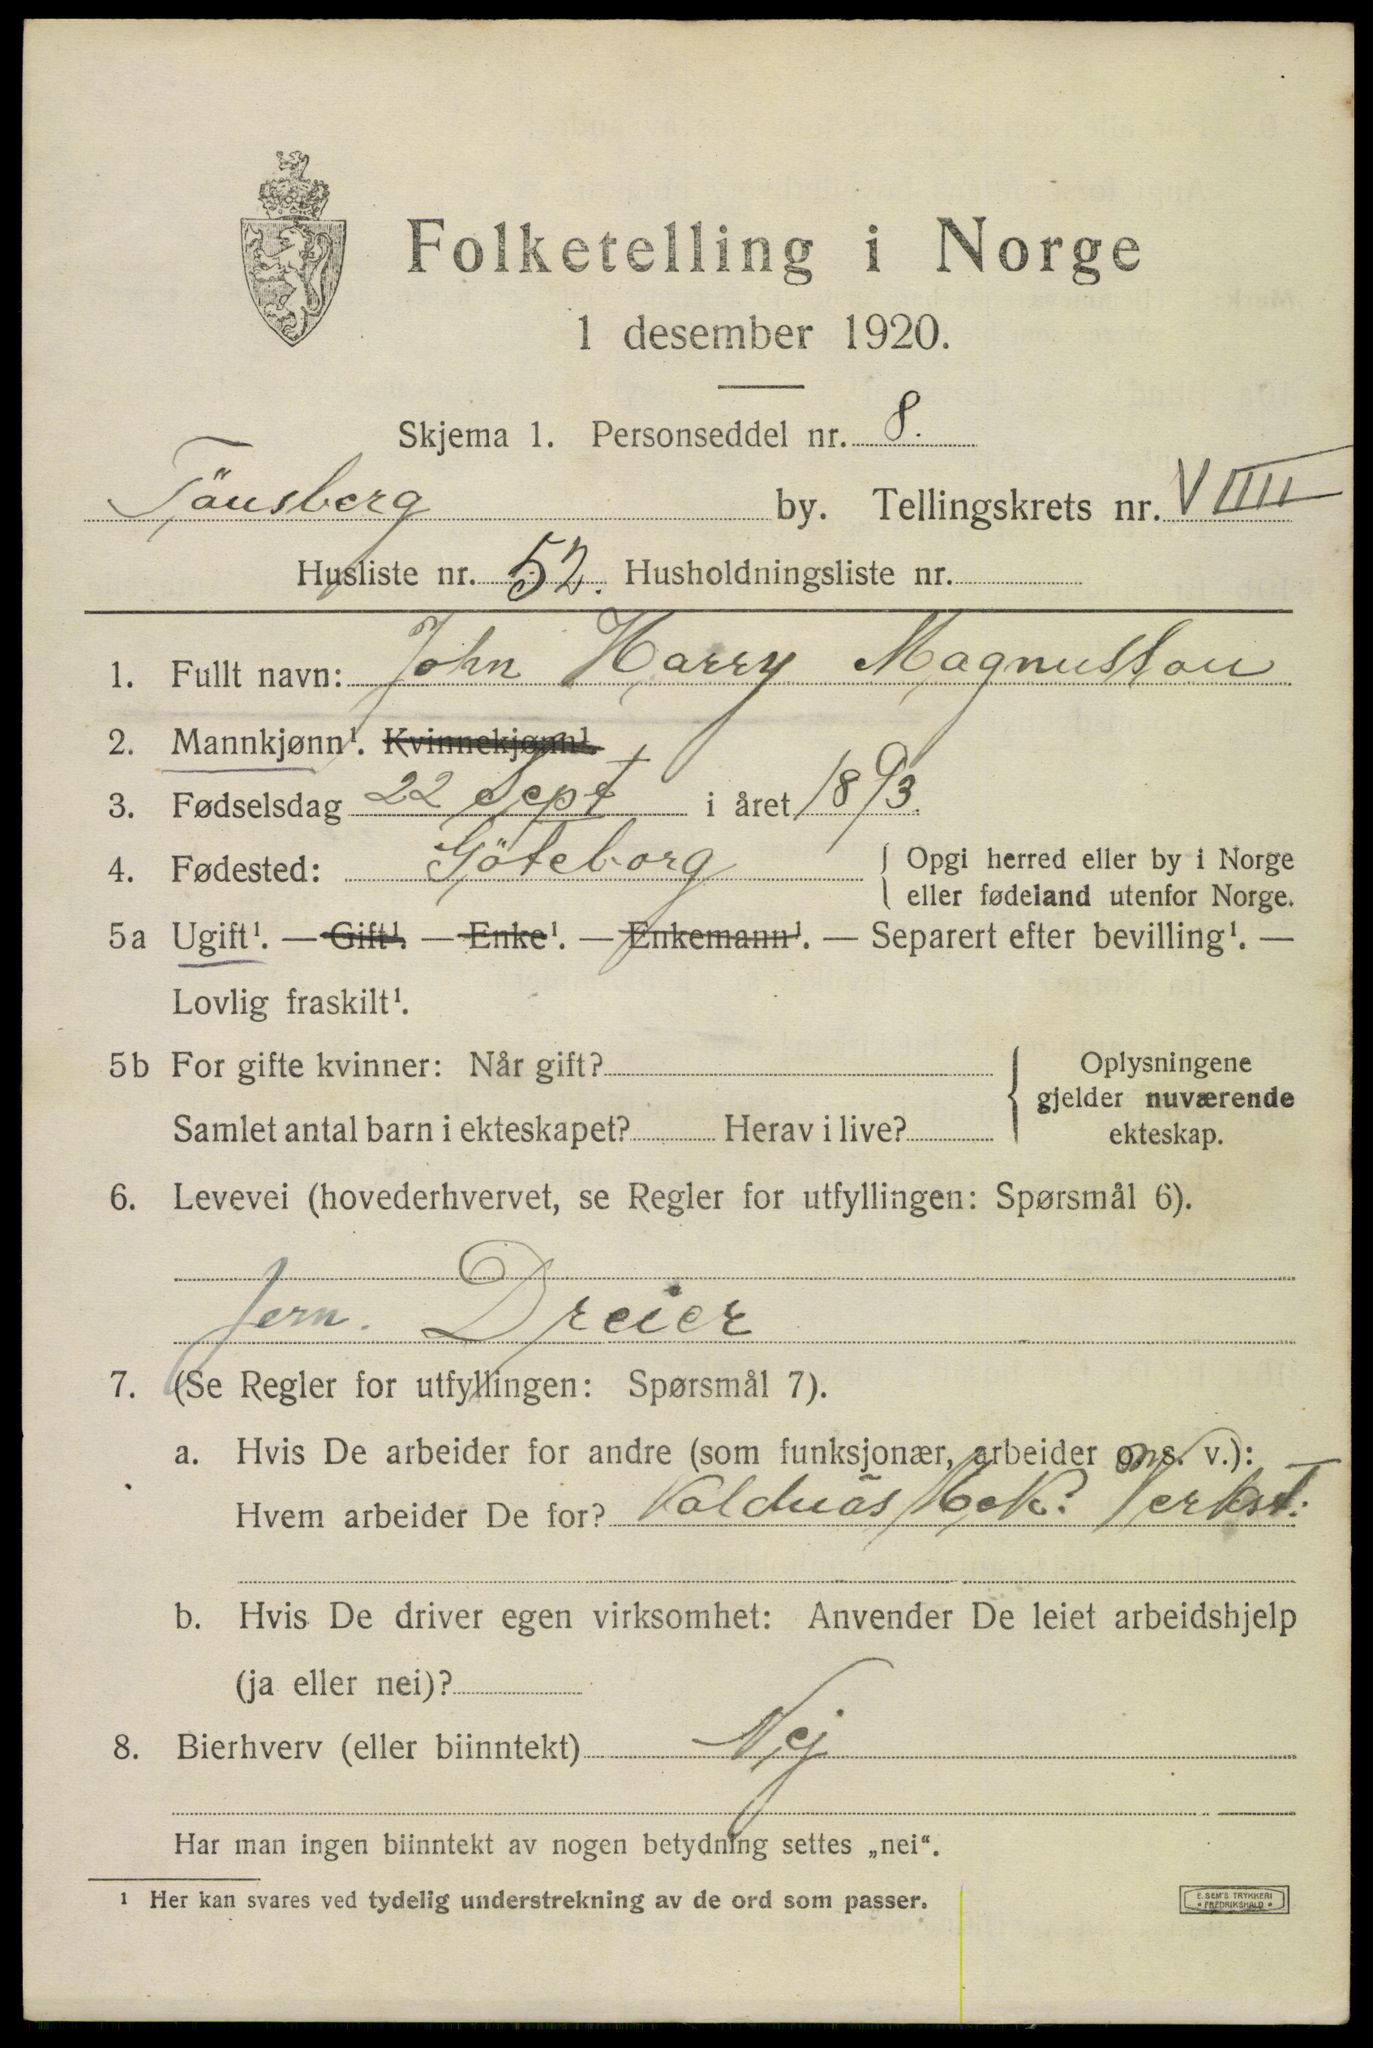 Folketelling i Norge
1 desember 1920.
Skjema 1. Personseddel nr. 8.
Tönsberg by. Tellingskrets nr. VIIII
Husliste nr. 52. Husholdningsliste nr.
1. Fullt navn: John Harry Magnusson
2. Mannkjønn¹. Kvinnekjønn¹.
3. Fødselsdag 22 Sept i året 1893.
4. Fødested: Göteborg { Opgi herred eller by i Norge
eller fødeland utenfor Norge.
5a Ugift¹. — Gift¹. — Enke¹. — Enkemann¹. — Separert efter bevilling¹. —
Lovlig fraskilt¹.
5b For gifte kvinner: Når gift? { Oplysningene
gjelder nuværende
Samlet antal barn i ekteskapet? Herav i live? ekteskap.
6. Levevei (hovederhvervet, se Regler for utfyllingen: Spørsmål 6).
Jern. Dreier
7. (Se Regler for utfyllingen: Spørsmål 7).
a. Hvis De arbeider for andre (som funksjonær, arbeider o. s. v.):
Hvem arbeider De for? Kaldnäs Mek. Verkst.
b. Hvis De driver egen virksomhet: Anvender De leiet arbeidshjelp
(ja eller nei)?
8. Bierhverv (eller biinntekt) Nej
Har man ingen biinntekt av nogen betydning settes „nei“.
¹ Her kan svares ved tydelig understrekning av de ord som passer.
E. SEM'S TRYKKERI
* FREDRIKSHALD *